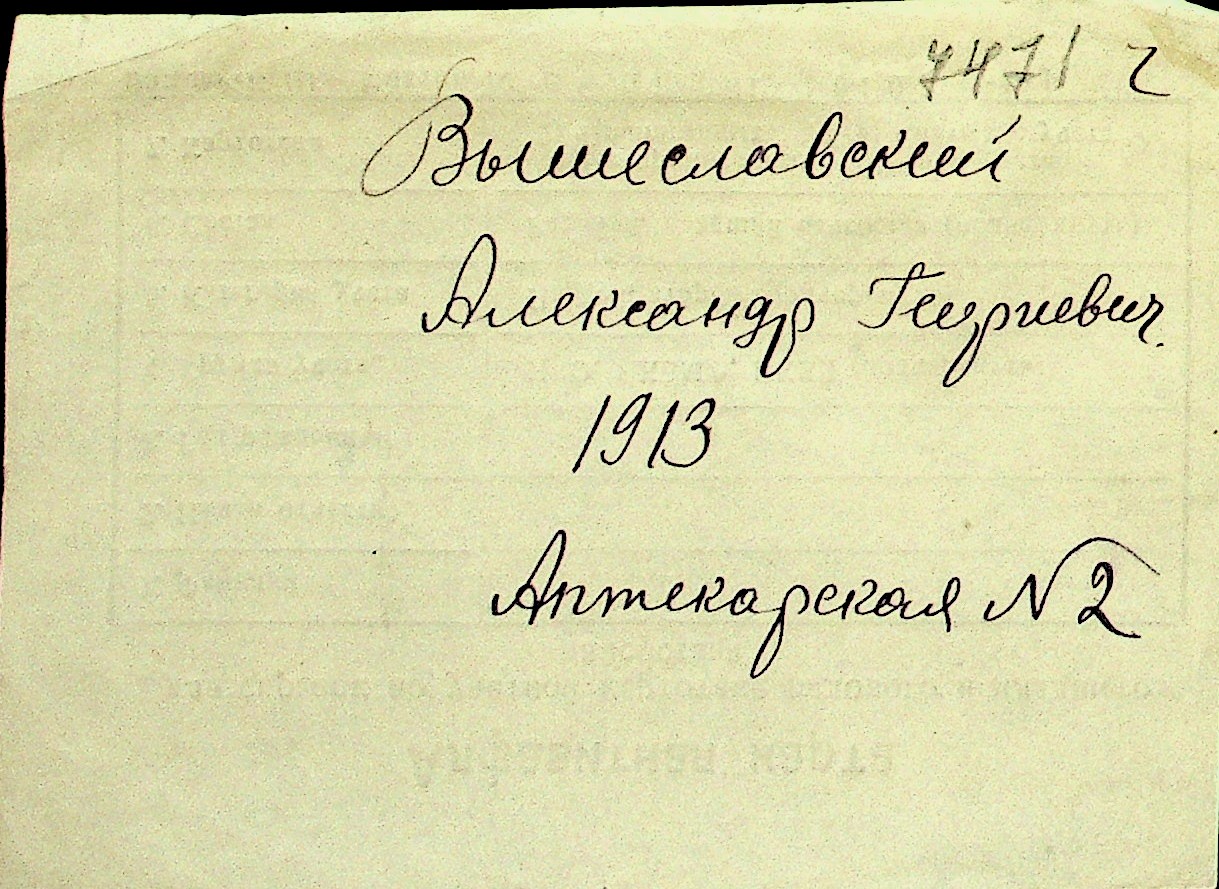 7471 г
Вышеславский
Александр Георгиевич.
1913
Аптекарская № 2